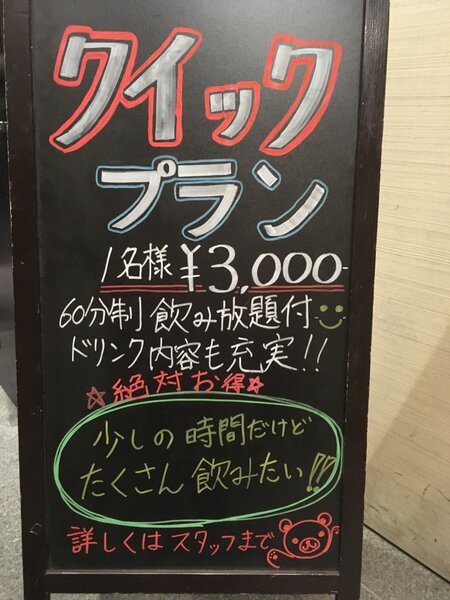 クイック
プラン
1名様 ¥3,000-
60分制 飲み放題付
ドリンク内容も充実!!
☆絶対お得☆
少しの時間だけど
たくさん飲みたい!!
詳しくはスタッフまで